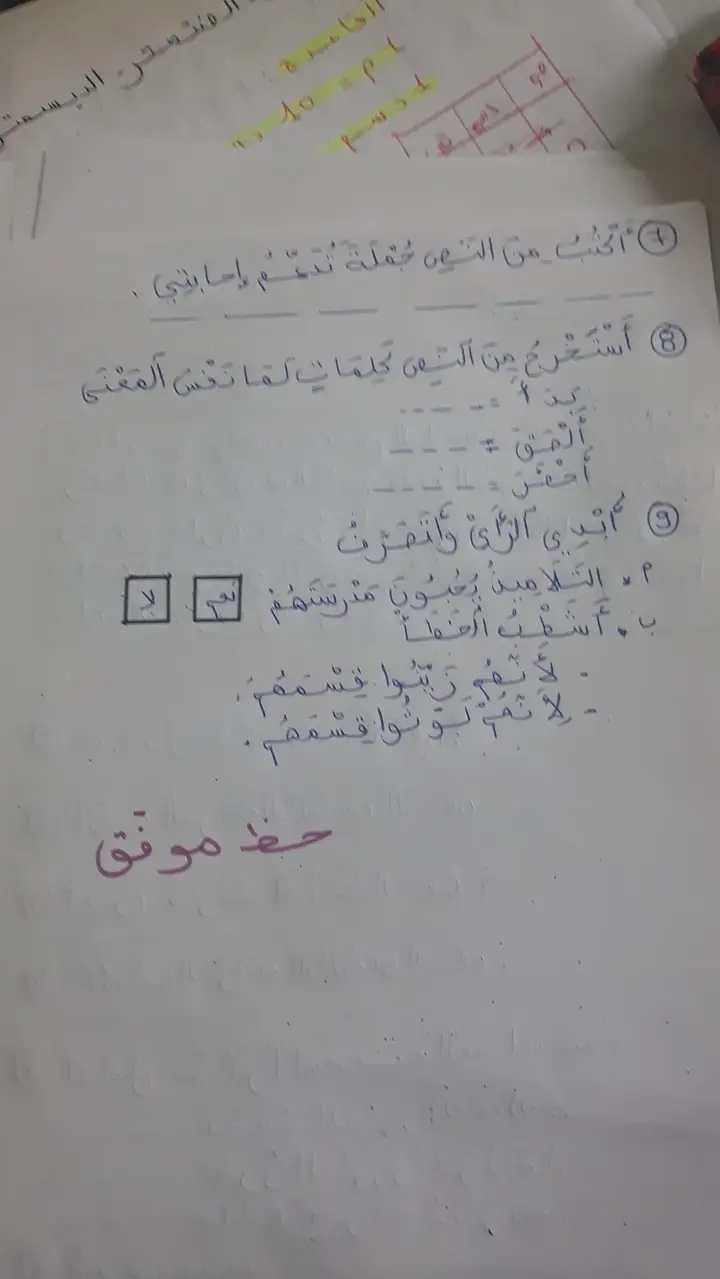 الخاصية
= 10
7 أَكْتُبُ مِنَ النَّصِ جُمْلَةً تُدَعِّمُ إجابتي .
8 أَسْتَخْرِجُ مِنَ النَّصِ كَلِمَاتٍ لَهَا نَفْسَ المَعْنَى
بَدَأَ = - - - -
أَلْصَقَ = - - - -
أَحْضَرَ = - - - -
9 أُبْدِي الرَّأْيَ وَأَتَصَرَّفُ
أ. التَّلَامِيذُ يُحِبُّونَ مَدْرَسَتَهُمْ نعم لا
ب. أَشْطُبُ الْخَطَأَ
- لِأَنَّهُمْ زَيَّنُوا قِسْمَهُمْ.
- لِأَنَّهُمْ لَوَّثُوا قِسْمَهُمْ.
حظ موفّق